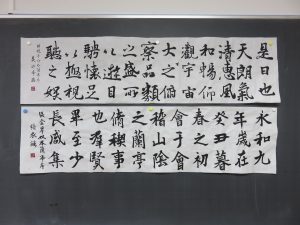 是日也
天朗氣
清惠風
和暢仰
觀宇宙
之大俯
察品類
之盛所
以遊目
騁懷足
以極視
聽之娛
永和九
年歲在
癸丑暮
春之初
會于會
稽山陰
之蘭亭
脩禊事
也群賢
畢至少
長咸集